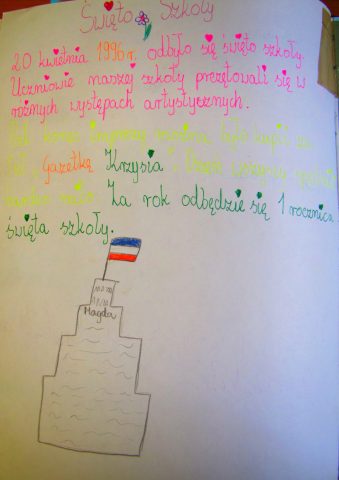 Święto Szkoły
20 kwietnia 1996 r. odbyło się święto szkoły.
Uczniowie naszej szkoły prezętowali się w
różnych występach artystycznych.
Pod koniec imprezy można było kupić za
"Gazetkę Krzysia".
bardzo Za rok odbędzie się 1 rocznica
święta szkoły.
Magda